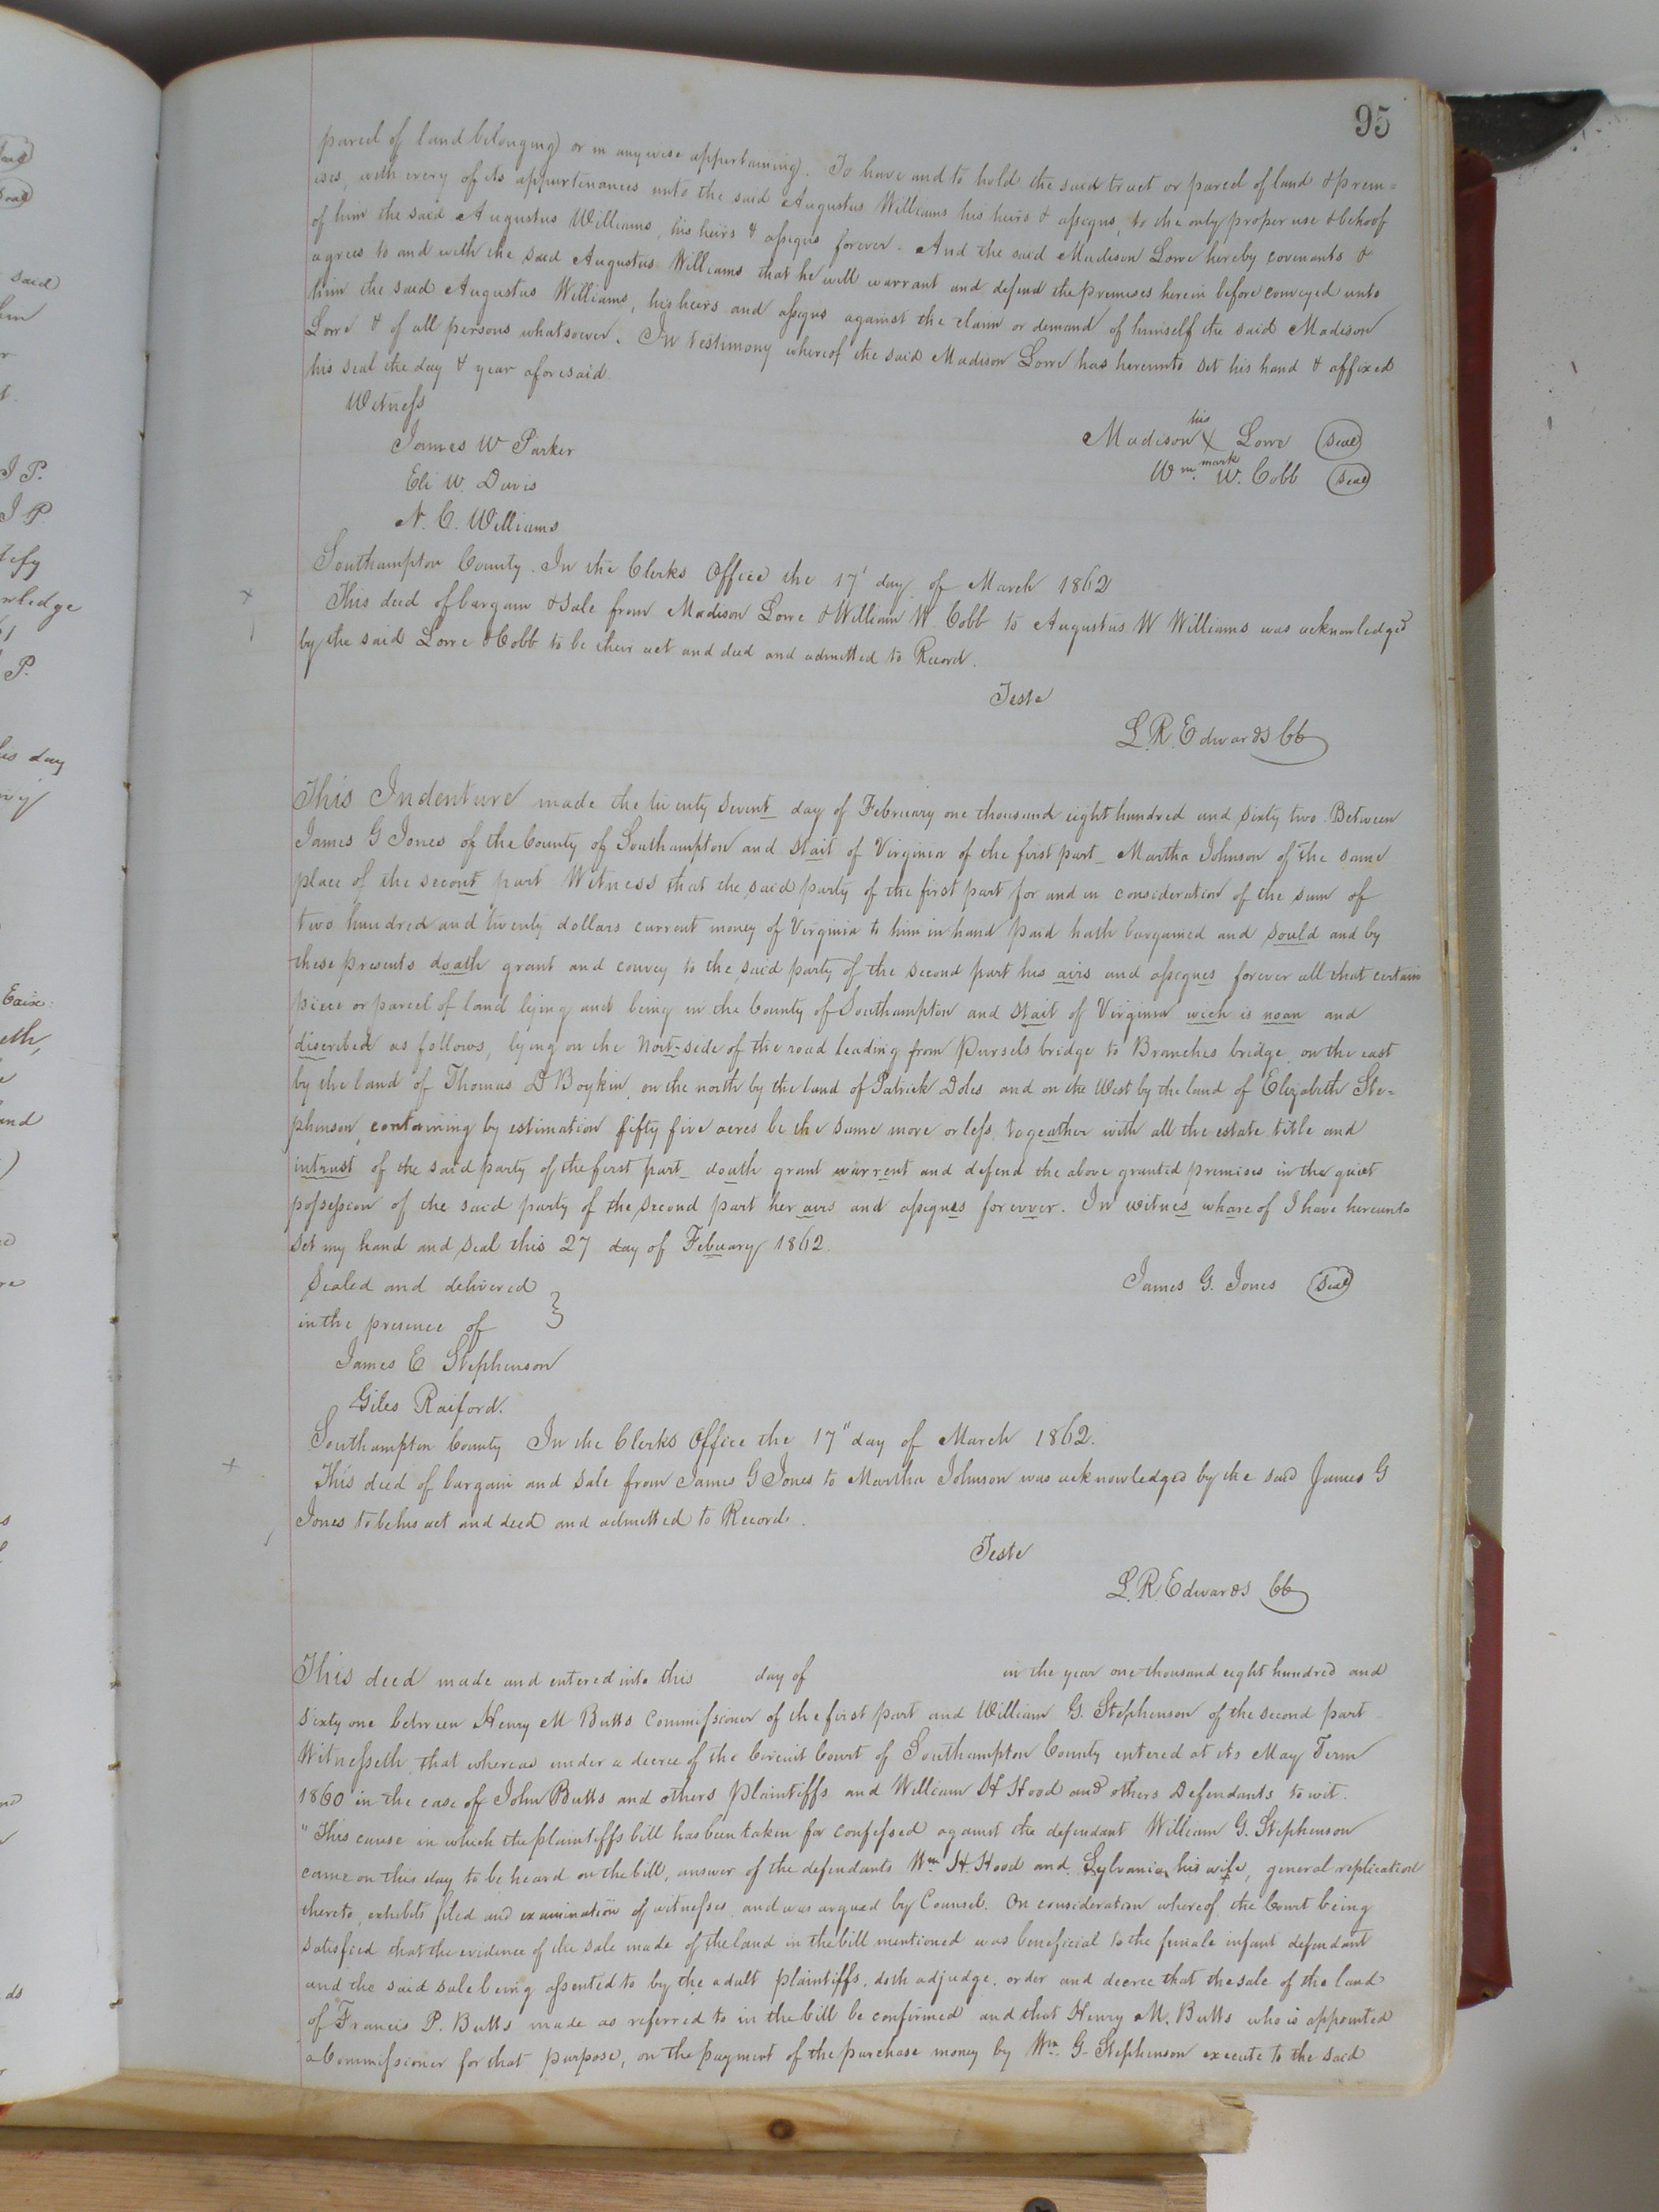 95
parcel of land belonging or in anywise appertaining. To have and to hold the said tract or parcel of land & prem=
ises, with every of its appurtenances unto the said Augustus Williams his heirs & assigns, to the only proper use & behoof
of him the said Augustus Williams, his heirs & assigns forever. And the said Madison Lowe hereby covenants &
agrees to and with the said Augustus Williams that he will warrant and defend the premises herein before conveyed unto
him the said Augustus Williams, his heirs and assigns against the claim or demand of himself the said Madison
Lowe & of all persons whatsoever. In testimony whereof the said Madison Lowe has hereunto set his hand & affixed
his seal the day & year aforesaid.
Witness
James W Parker
Eli W. Davis
N. C. Williams
his
Madison X Lowe (Seal)
mark
Wm. W. Cobb (Seal)
Southampton County. In the Clerks Office the 17' day of March 1862
This deed of bargain & Sale from Madison Lowe & William W. Cobb to Augustus W Williams was acknowledged
by the said Lowe & Cobb to be their act and deed and admitted to Record.
Teste
L. R. Edwards CC
This Indenture made the twenty sevent day of February one thousand eight hundred and sixty two. Between
James G Jones of the County of Southampton and Stait of Virginia of the first part - Martha Johnson of the same
place of the secont part Witness that the said party of the first part for and in consideration of the sum of
two hundred and twenty dollars current money of Virginia to him in hand paid hath bargained and sould and by
these presents doath grant and convey to the said party of the second part his airs and assignes forever all that certain
piece or parcel of land lying and being in the County of Southampton and Stait of Virginia wich is noan and
discribed as follows, lying on the Nort-side of the road leading from Pursels bridge to Branches bridge, on the east
by the land of Thomas D Boykin, on the north by the land of Patrick Doles and on the West by the land of Elizabeth Ste=
phenson, containing by estimation fifty five acres be the same more or less, togeather with all the estate title and
intrust of the said party of the first part - doath grant warrent and defend the above granted premises in the quiet
possession of the said party of the second part her airs and assignes forevver. In witnes whareof I have hereunto
set my hand and seal this 27 day of Febuary 1862.
Sealed and delivered }
in the presence of
James G. Jones (Seal)
James E Stephenson
Giles Raiford.
Southampton County In the Clerks Office the 17" day of March 1862.
This deed of bargain and sale from James G Jones to Martha Johnson was acknowledged by the said James G
Jones to be his act and deed and admitted to Record.
Teste
L. R. Edwards CC
This deed made and entered into this day of in the year one thousand eight hundred and
sixty one between Henry M Butts Commissioner of the first part and William G. Stephenson of the second part
Witnesseth, that whereas under a decree of the Circuit Court of Southampton County entered at its May Term
1860 in the case of John Butts and others Plaintiffs and William H Hood and others Defendants to wit.
"This cause in which the plaintiffs bill has been taken for confessed against the defendant William G. Stephenson
came on this day to be heard on the bill, answer of the defendants Wm. H. Hood and Sylvania his wife, general replication
thereto, exhibits filed and examination of witnesses, and was argued by Counsel. On consideration whereof the Court being
satisfied that the evidence of the sale made of the land in the bill mentioned was beneficial to the female infant defendant
and the said sale being assented to by the adult plaintiffs, doth adjudge, order and decree that the sale of the land
of Francis P. Butts made as referred to in the bill be confirmed and that Henry M. Butts who is appointed
a Commissioner for that purpose, on the payment of the purchase money by Wm. G. Stephenson execute to the said